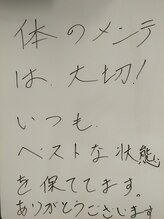 体のメンテ
は、大切!
いつも、
ベストな状態
を保ててます。
ありがとうございます